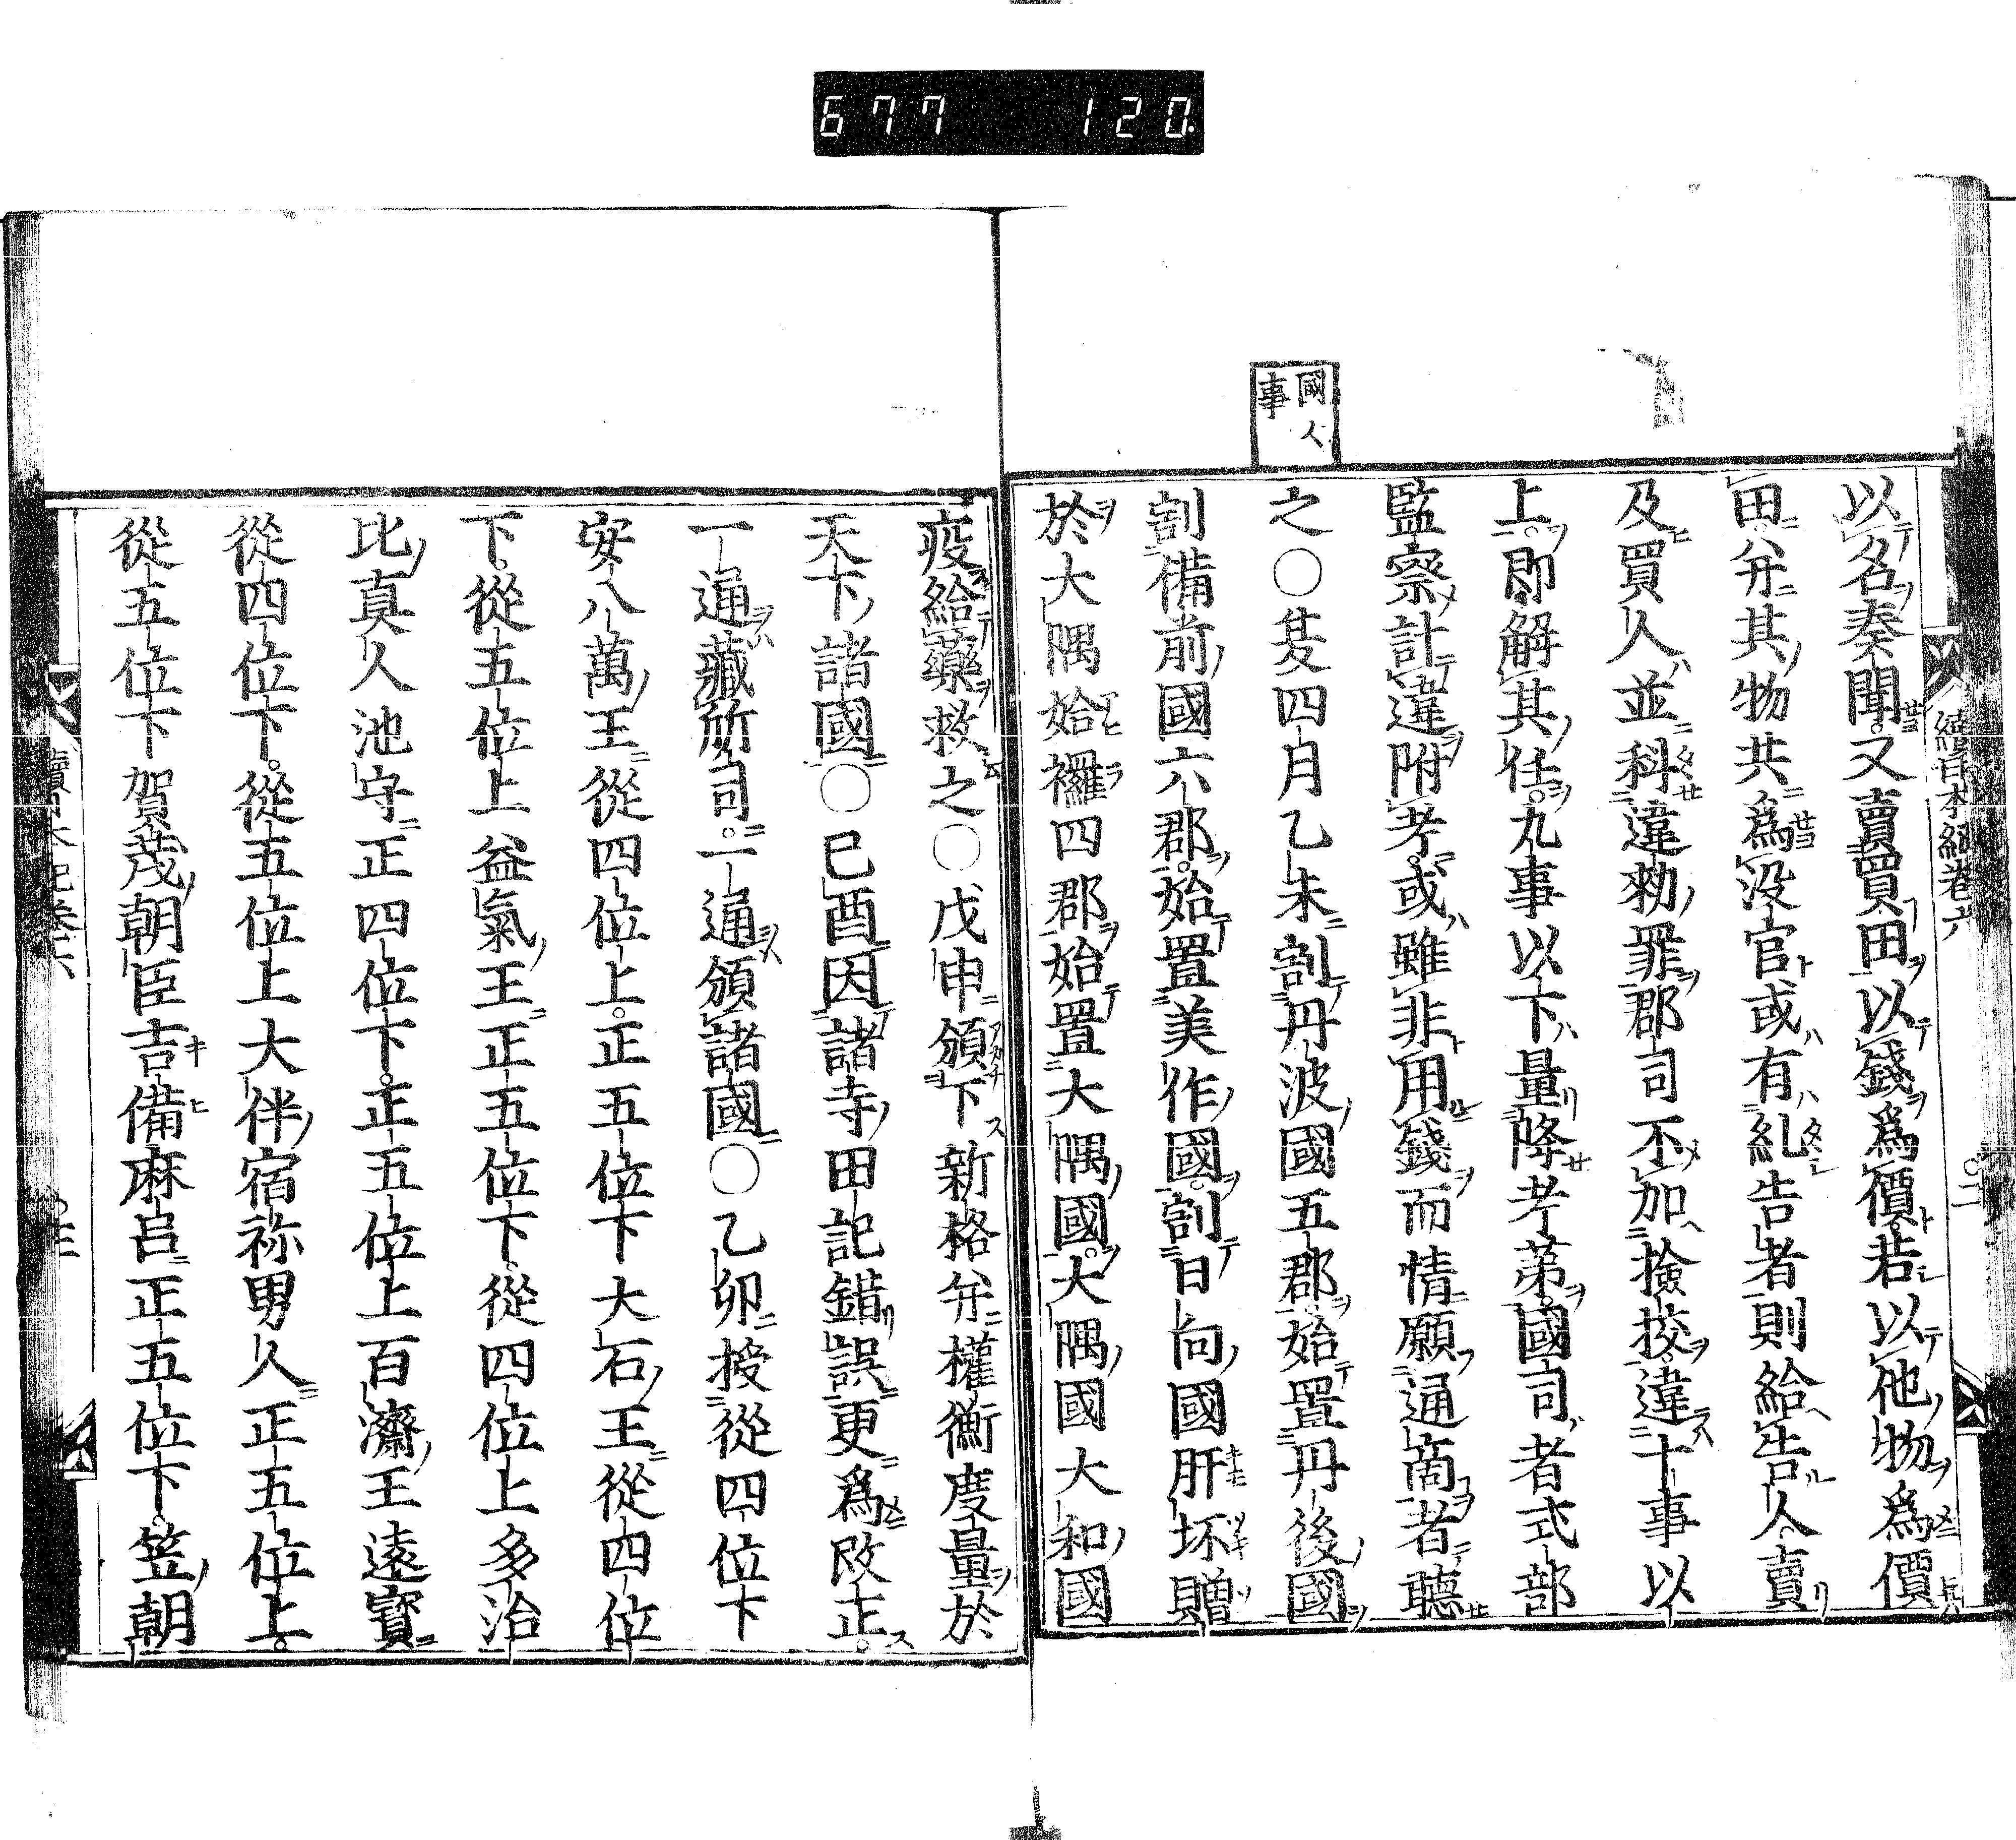 677 120
國人
事
續日本紀卷六 二
以名奏聞又賣買田以錢爲價若以他物爲價
田弁其物共爲没官或有糺告者則給告人賣
及買人並科違勅罪郡司不加撿挍違十事以
上即解其任九事以下量降考第國司者式部
監察計違附考或雖非用錢而情願通商者聽
之○夏四月乙未割丹波國五郡始置丹後國
割備前國六郡始置美作國割日向國肝坏贈
於大隅姶䙫四郡始置大隅國大隅國大和國
疫給藥救之○戊申頒下新格弁權衡度量於
天下諸國○己酉因諸寺田記錯誤更爲改正
一通藏所司二通頒諸國○乙卯授從四位下
安八萬王從四位上正五位下大石王從四位
下從五位上益氣王正五位下從四位上多治
比真人池守正四位下正五位上百濟王遠寶
從四位下從五位上大伴宿祢男人正五位上
從五位下賀茂朝臣吉備麻呂正五位下笠朝
續日本紀卷六 三